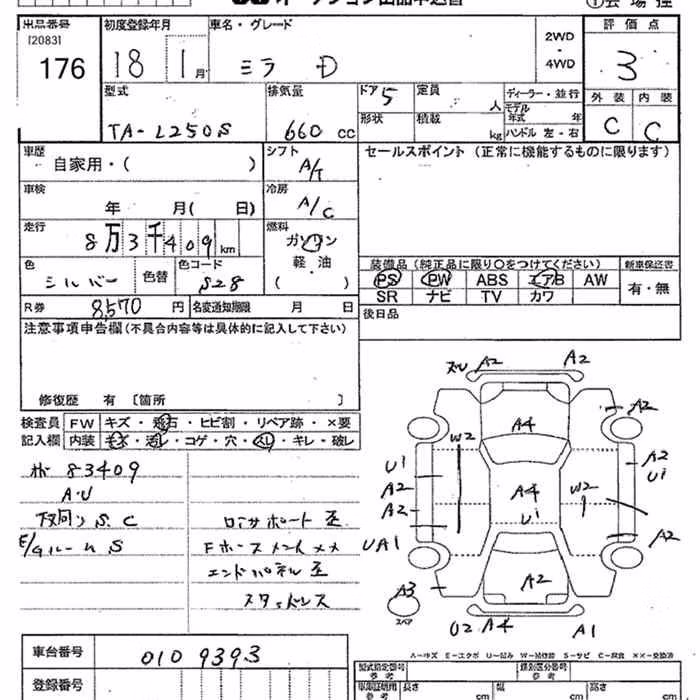 出品番号 初度登録年月 車名・グレード 2WD・4WD 評価点
[2083]
176 18 1月 ミラ D 3
型式 排気量 ドア 5 定員 人 ディーラー・並行 外装 内装
TA-L250S 660 cc 形状 積載 kg モデル年式 年 ハンドル 左・右 C C
車歴 自家用・( ) シフト A/T セールスポイント (正常に機能するものに限ります)
車検 年 月( 日) 冷房 A/C
走行 8万3千409km 燃料 ガソリン
色 シルバー 色替 色コード S28 軽・油
( )
装備品 (純正品に限り○をつけてください) 新車保証書
PS PW ABS エアB AW 有・無
SR ナビ TV カワ
R券 8,570 円 名変通知期限 月 日 後日品
注意事項申告欄 (不具合内容等は具体的に記入して下さい)
修復歴 有 [箇所 ]
検査員 FW キズ・飛石・ヒビ割・リペア跡・×要
記入欄 内装 キズ・汚レ・コゲ・穴・スレ・キレ・破レ
83409
A.U
S.C
E/Gルーム S
ロアサポート 歪
エンドパネル 歪
スタッドレス
A2 A2
A4 A2
U1 W2 A2
A2 A4 W2 U1
A2 U1
UA1 A2
A3 A2
スペア
U2 A4 A1
車台番号 0109393
登録番号
型式指定番号 類別区分番号
参考 参考
長さ cm 幅 cm 高さ cm